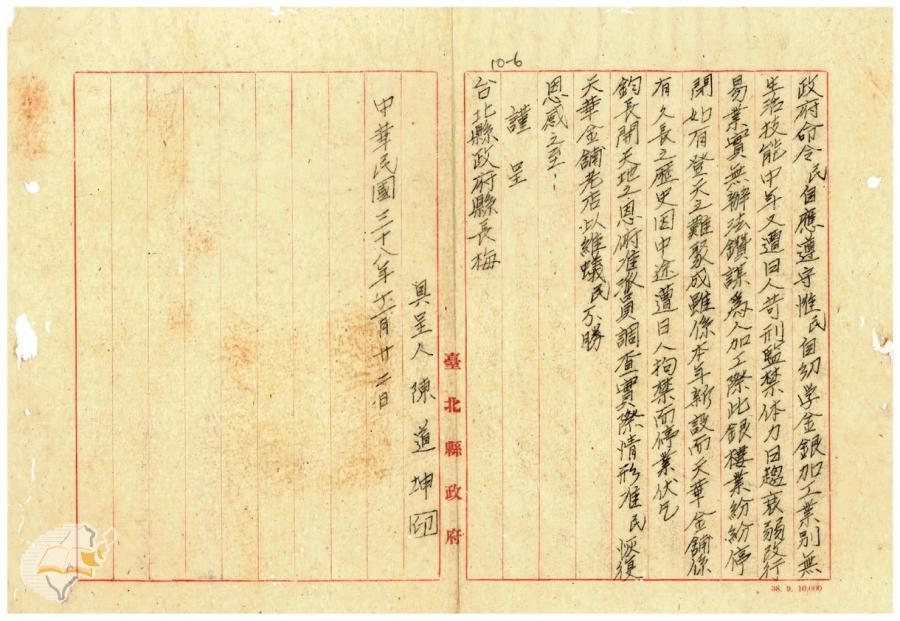 10-6
政府命令民自應遵守惟民自幼学金銀加工業別無
生活技能中年又遭日人苛刑監禁体力日趨衰弱改行
易業實無辦法鑽謀為人加工際此銀樓業紛紛停
閉如有登天之難聚成雖係本年新設而天華金舖係
有久長之歷史因中途遭日人拘禁而停業伏乞
鈞長開天地之恩俯准派員調查實際情形准民恢復
天華金舖老店以維蟻民不勝
恩感之至！
謹呈
台北縣政府縣長梅
具呈人陳道坤印
中華民國三十八年十一月廿二日
臺北縣政府
38. 9. 10,000